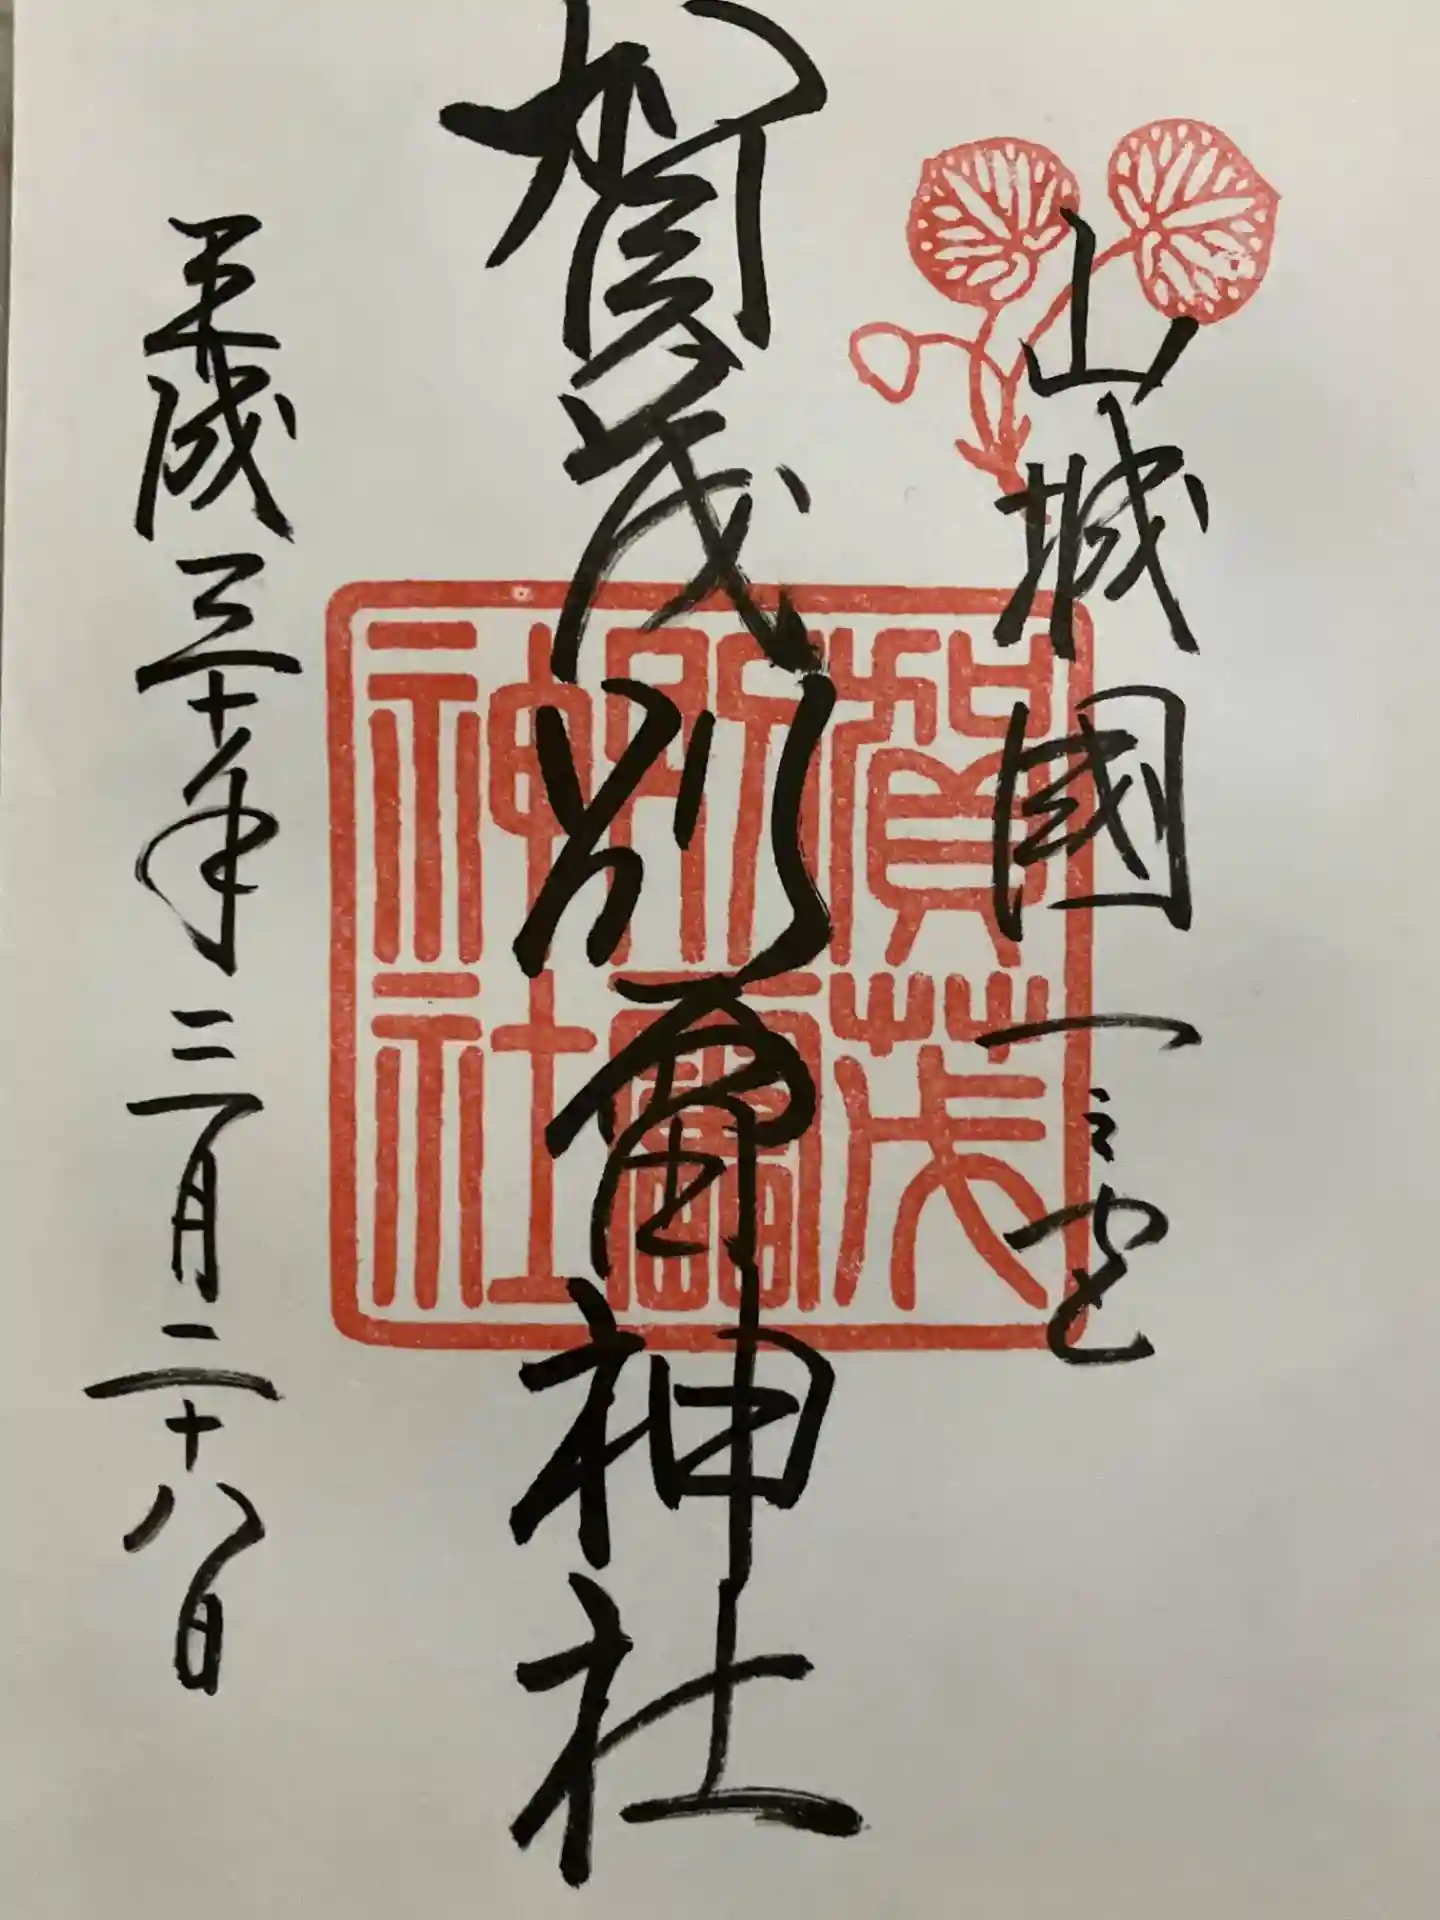 山城國一之宮
賀茂別雷神社
平成三十年三月二十八日
賀茂
別雷
神社